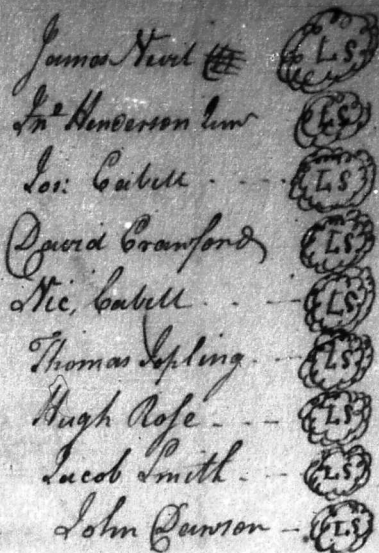 James Nevil LS
Jno Henderson Junr LS
Jos: Cabell - - - LS
David Crawford LS
Nic, Cabell - - - LS
Thomas Jopling - - LS
Hugh Rose - - - LS
Jacob Smith - - - LS
John Dawson - LS